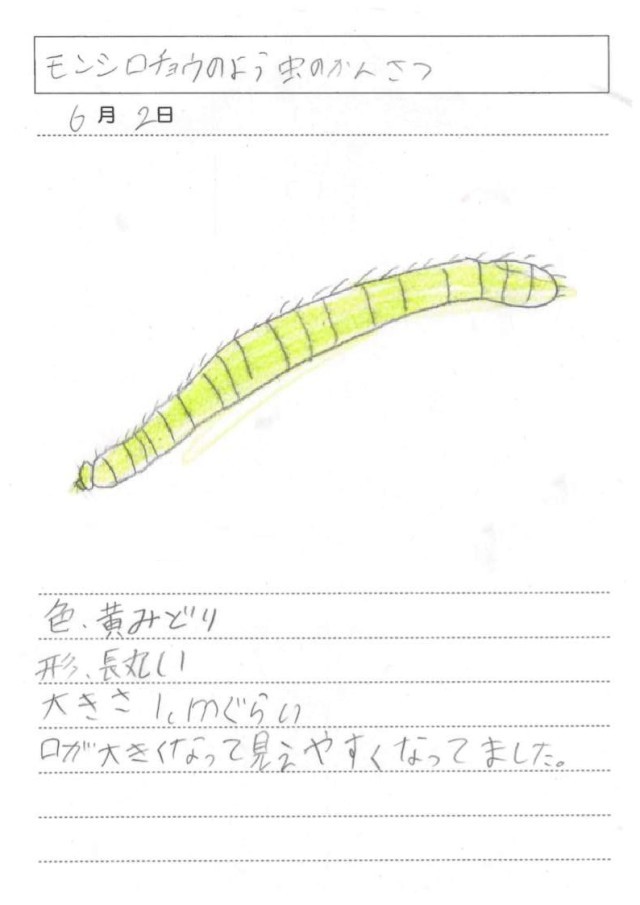 モンシロチョウのよう虫のかんさつ
6月2日
色、黄みどり
形、長丸い
大きさ 1cmぐらい
口が大きくなって見えやすくなってました。